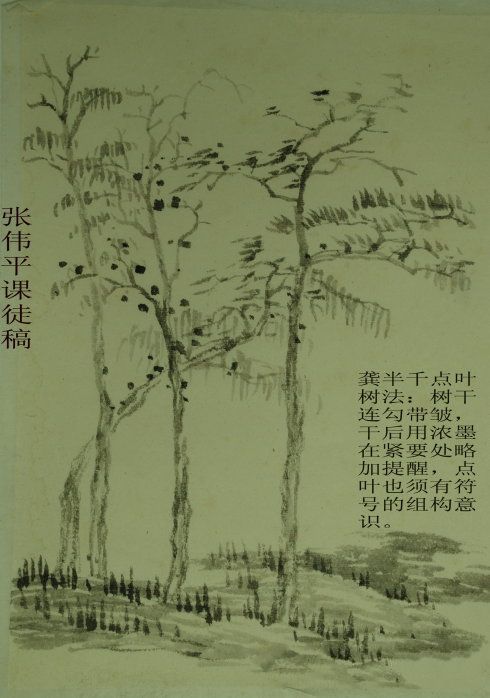 张伟平课徒稿
龚半千点叶
树法：树干
连勾带皱，
干后用浓墨
在紧要处略
加提醒，点
叶也须有符
号的组构意
识。